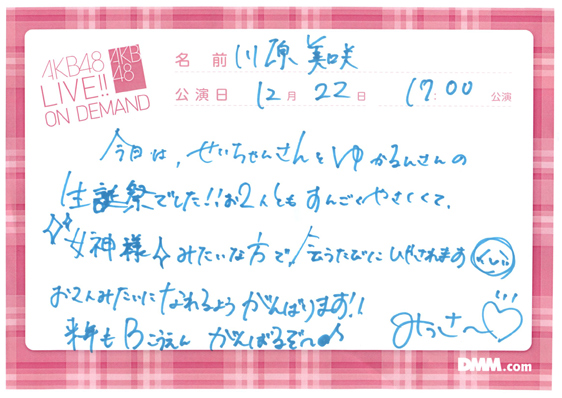 AKB48
LIVE!!
ON DEMAND
AKB
48
名前 川原美咲
公演日 12月22日 17:00 公演
今日は、せいちゃんさんとゆかるんさんの
生誕祭でした!!お2人ともすんごくやさしくて、
女神様みたいな方で会うたびにいやされます
お2人みたいになれるようがんばります!!
来年もBこうえん がんばるぞ〜♪
みっさ〜♡
DMM.com